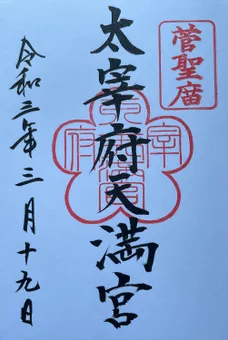 菅聖庿
太宰府天満宮
令和三年三月十九日